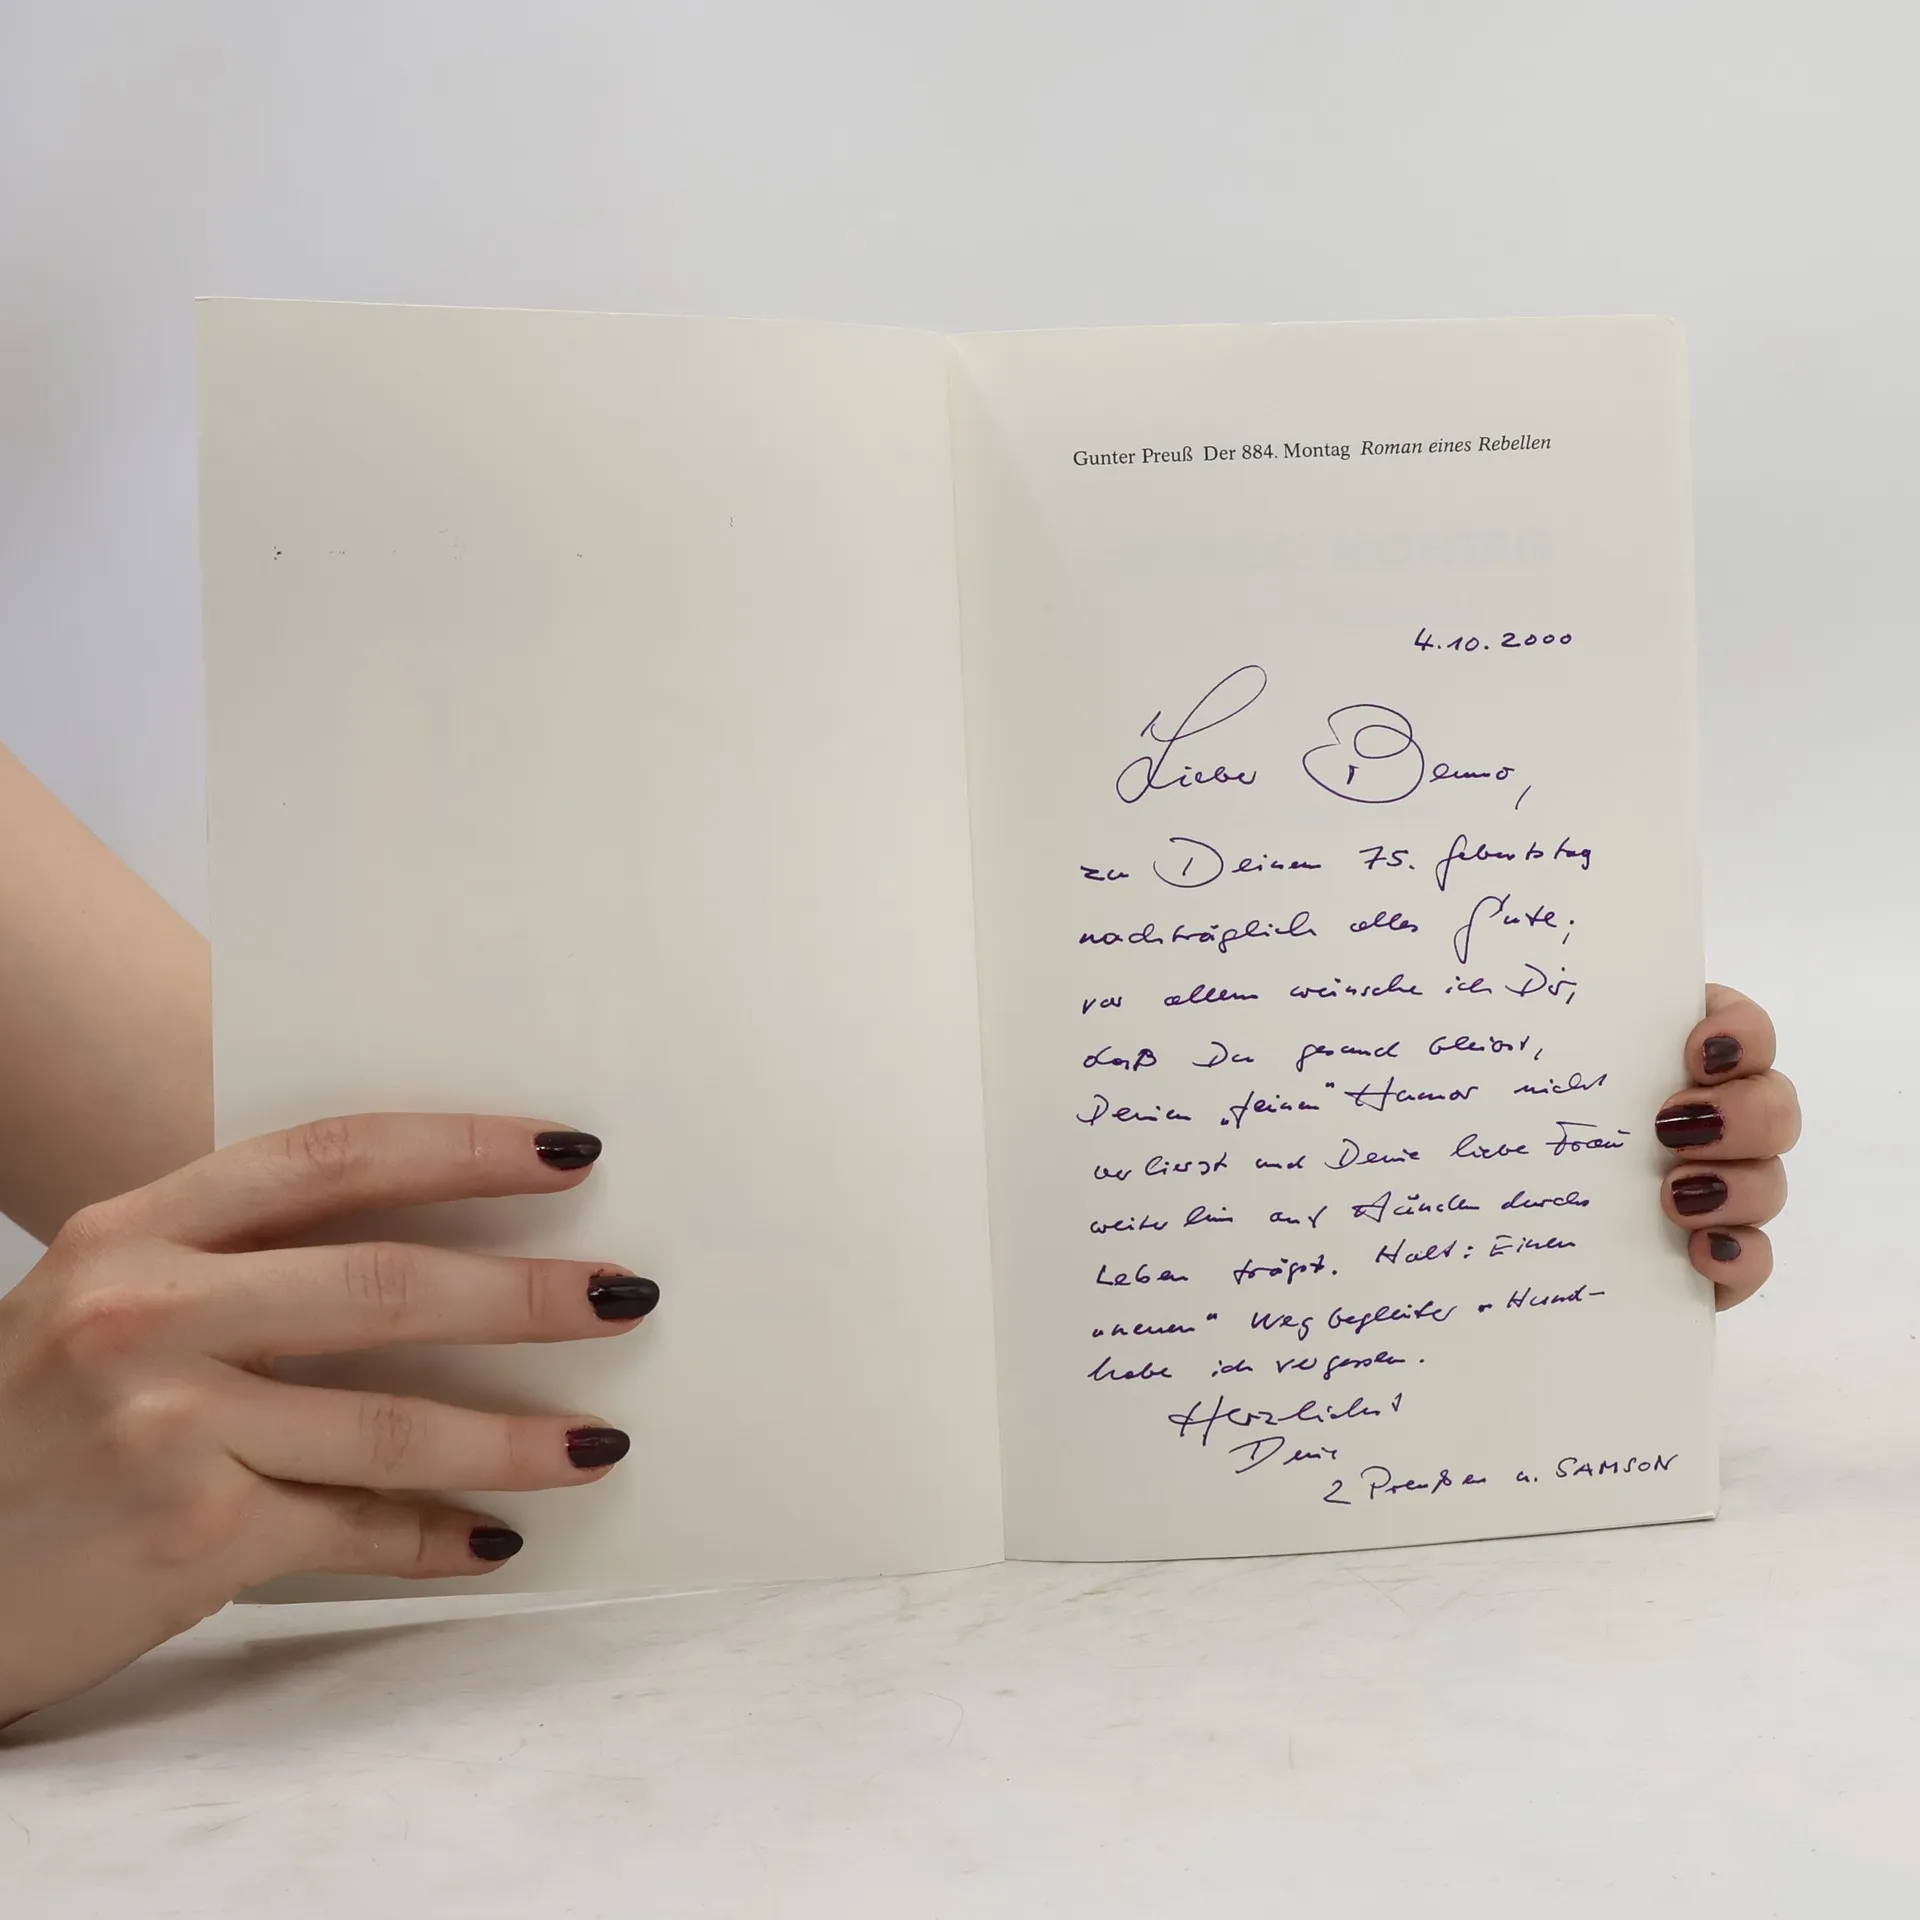 Gunter Preuß Der 884. Montag Roman eines Rebellen
4.10.2000
Lieber Benno,
zu Deinem 75. Geburtstag
nachträglich alles Gute;
vor allem wünsche ich Dir,
daß Du gesund bleibst,
Deinen „feinen" Humor nicht
verlierst und Deine liebe Frau
weiterhin auf Händen durchs
Leben trägst. Halt: Einen
"neuen" Wegbegleiter - Hund -
habe ich vergessen.
Herzlichst
Deine
2 Preußen u. SAMSON